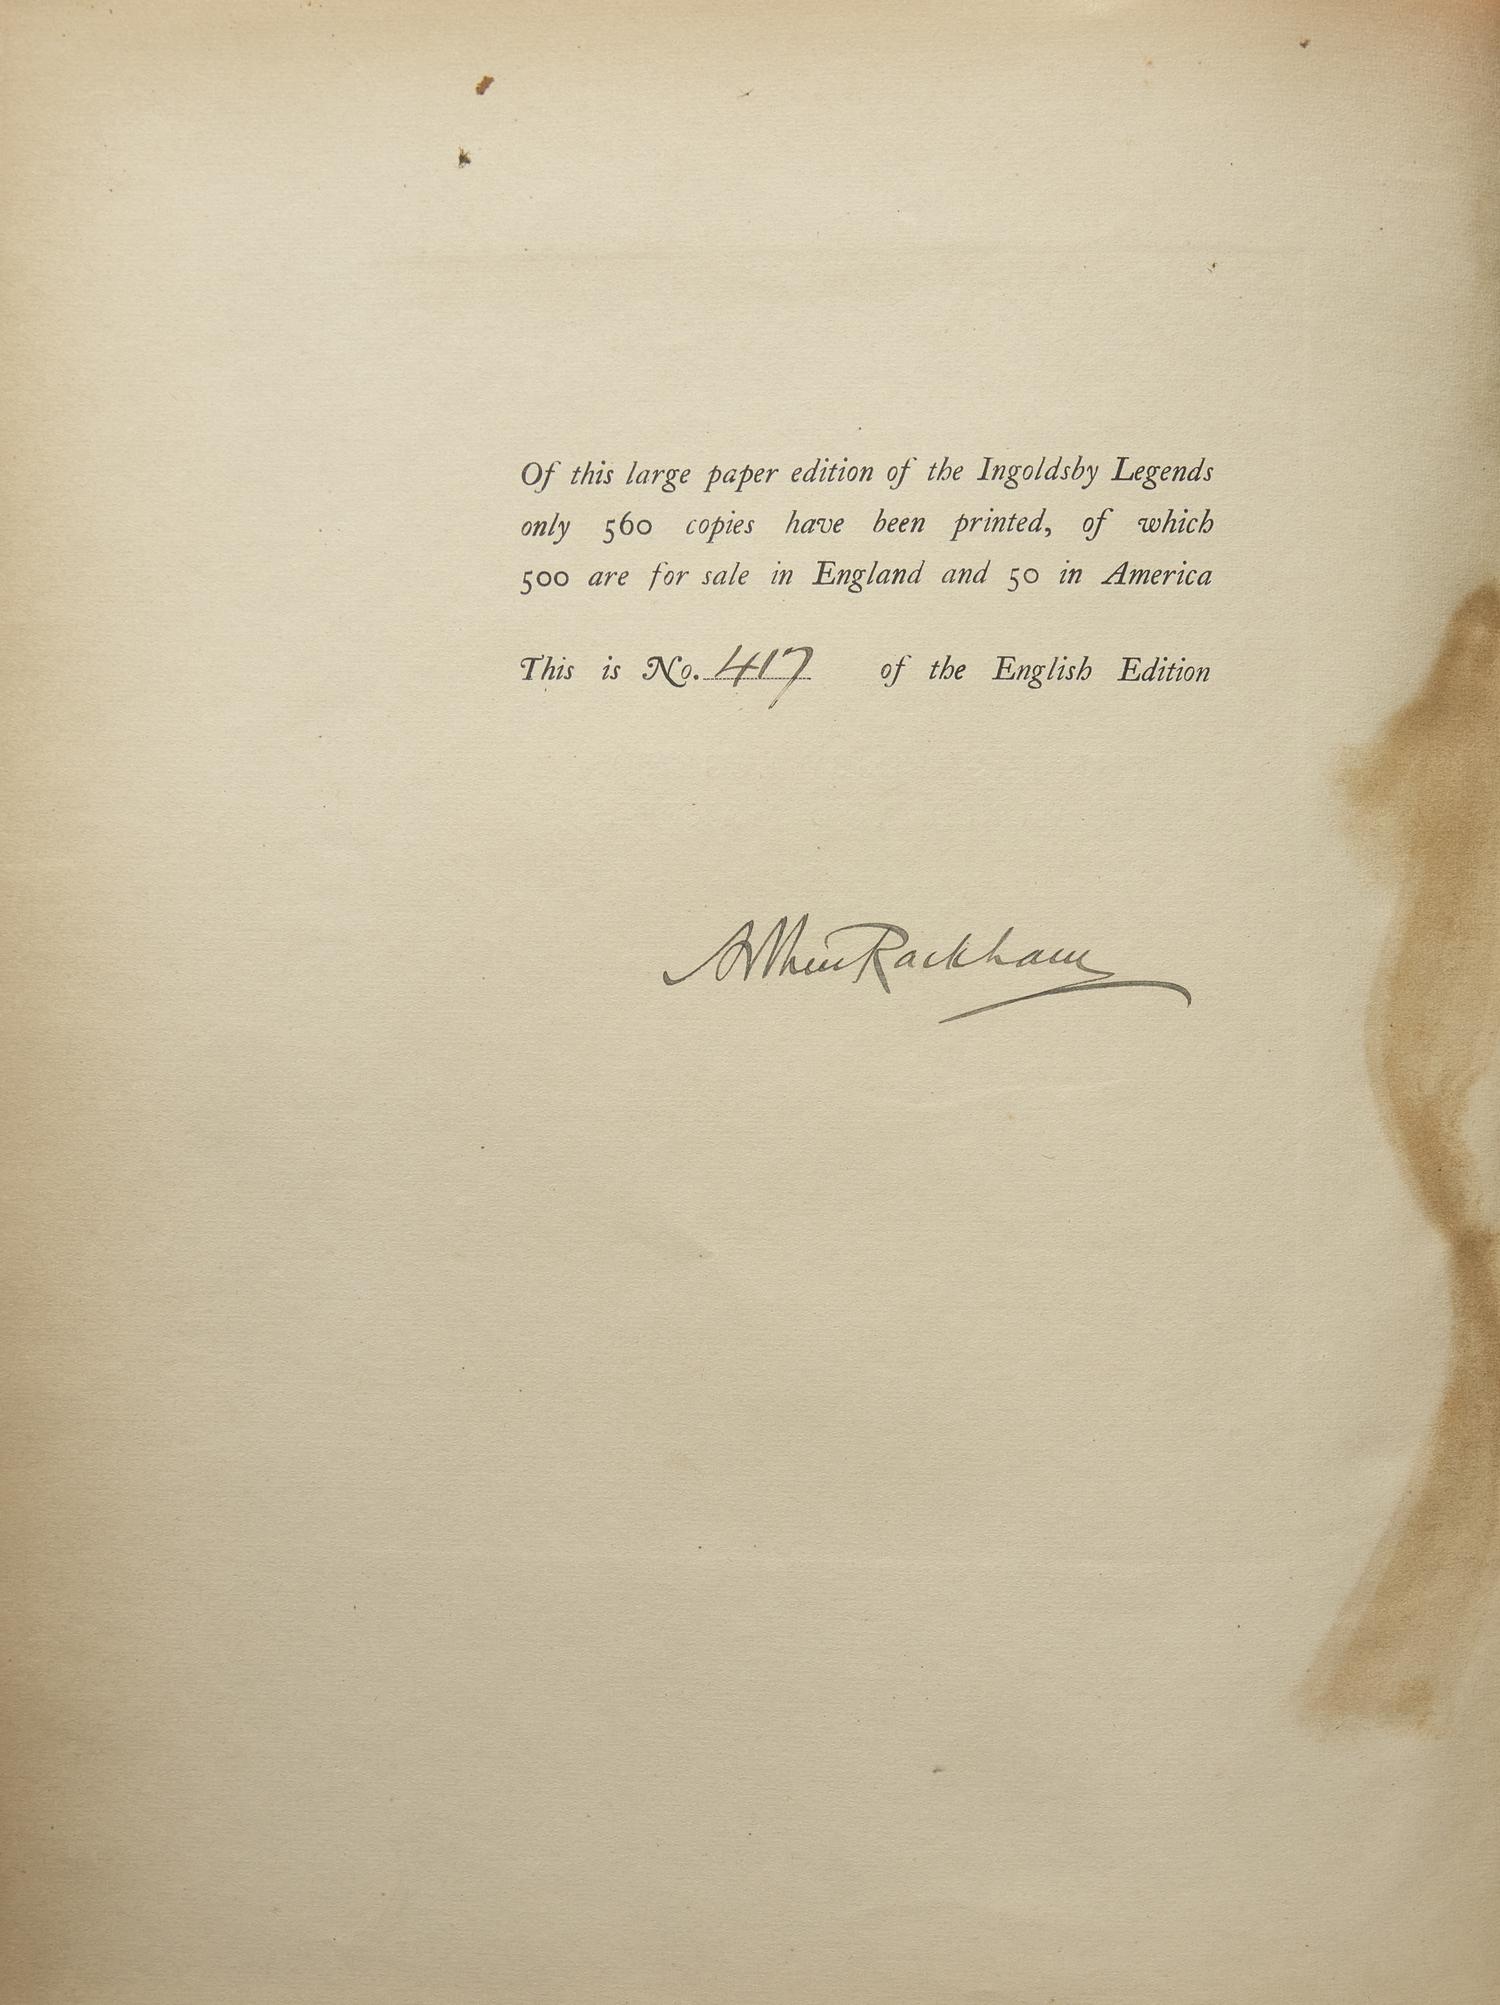 Of this large paper edition of the Ingoldsby Legends
only 560 copies have been printed, of which
500 are for sale in England and 50 in America
This is No. 417 of the English Edition
Arthur Rackham